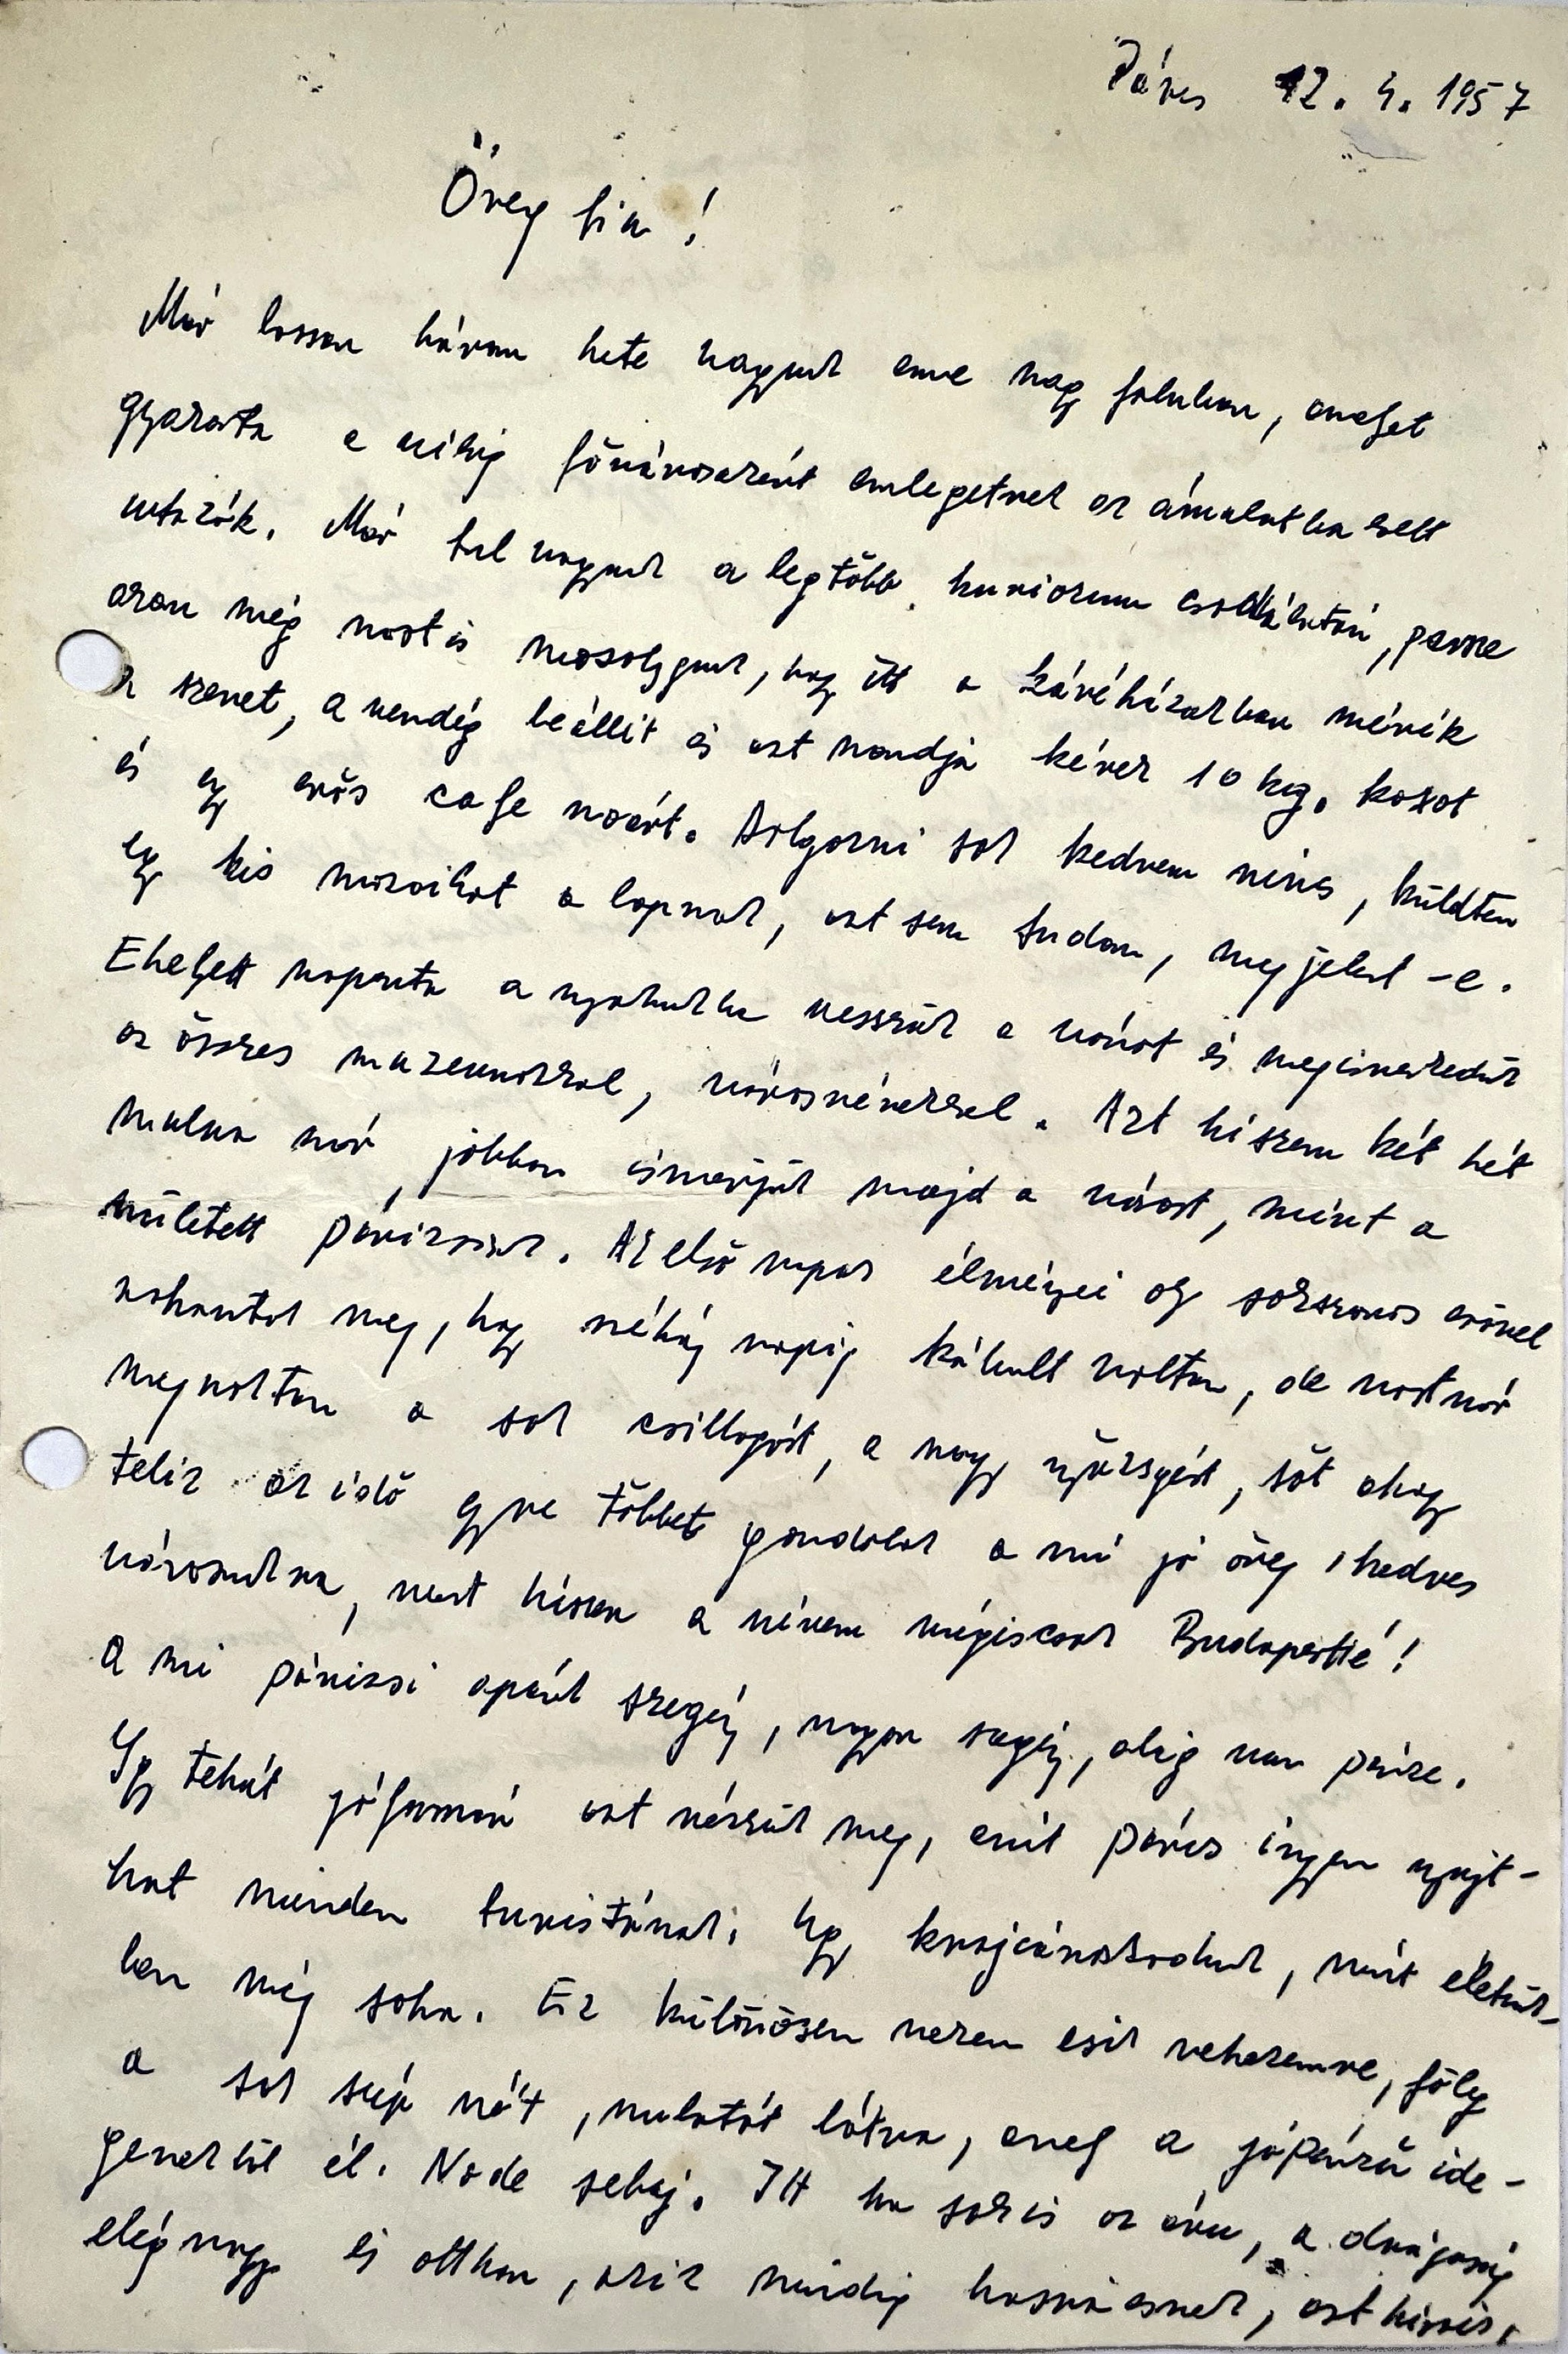 Páris 12. 4. 1957
Öreg fiu!
Már lassan három hete vagyunk eme nagy faluban, amelyet
gyakorta a világ fővárosaként emlegetnek az ámulatba esett
utazók. Már tul vagyunk a legtöbb kuriozum csodálatán, persze
azon még most is mosolygunk, hogy itt a kávéházakban mérik
a szenet, a vendég beállit és azt mondja kérek 10 kg. kokszot
és egy erős cafe noart. Dolgozni sok kedvem nincs, küldtem
egy kis mozaikot a lapnak, azt sem tudom, megjelent-e.
Ehelyett naponta a nyakunkba vesszük a várost és megismerkedünk
az összes muzeumokkal, városnévezekkel. Azt hiszem két hét
mulva már jobban ismerjük majd a várost, mint a
született párizsiak. Az első napok élményei oly sokszoros erővel
rohantak meg, hogy néhány napig kábult voltam, de most már
megszoktam a sok csillogást, a nagy nyüzsgést, sőt ahogy
telik az idő egyre többet gondolok a mi jó öreg, kedves
városunkra, mert hiszen a szívem mégiscsak Budapesté!
A mi párizsi apánk szegény, nagyon szegény, alig van pénze.
Igy tehát jóformán azt nézzük meg, amit Páris ingyen nyujt-
hat minden turistának. Ugy krajcároskodunk, mint életünk-
ben még soha. Ez különösen nekem esik nehezemre, főleg
a sok szép nőt, mulatót látva, amely a jópénzü ide-
genekből él. No de sebaj. Itt ha sok is az áru, a drágaság
elég nagy és otthon, akik mindig hasra esnek, azt hiszik,